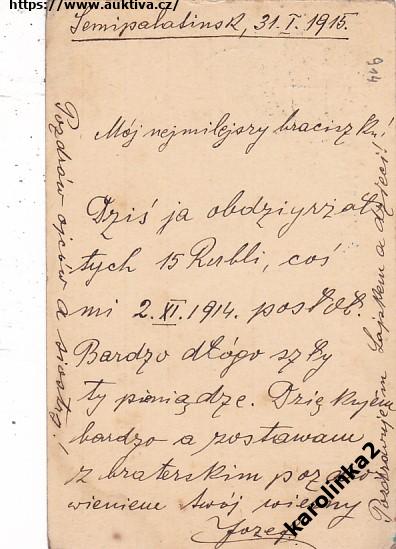 https://www.auktiva.cz/
Semipalatinsk, 31.I.1915.
914
Mój nejmilejszy braciszku!
Dziś ja obdziyrżał
tych 15 Rubli, coś
mi 2.XI.1914. posłoł.
Bardzo dłógo szły
ty pieniądze. Dziękujem
bardzo a zostawam
z braterskim pozdro
wieniem twój wierny
Jozef.
Pozdrów ojców a siostry!
Pozdrawujem a dzieci!
karolinka2